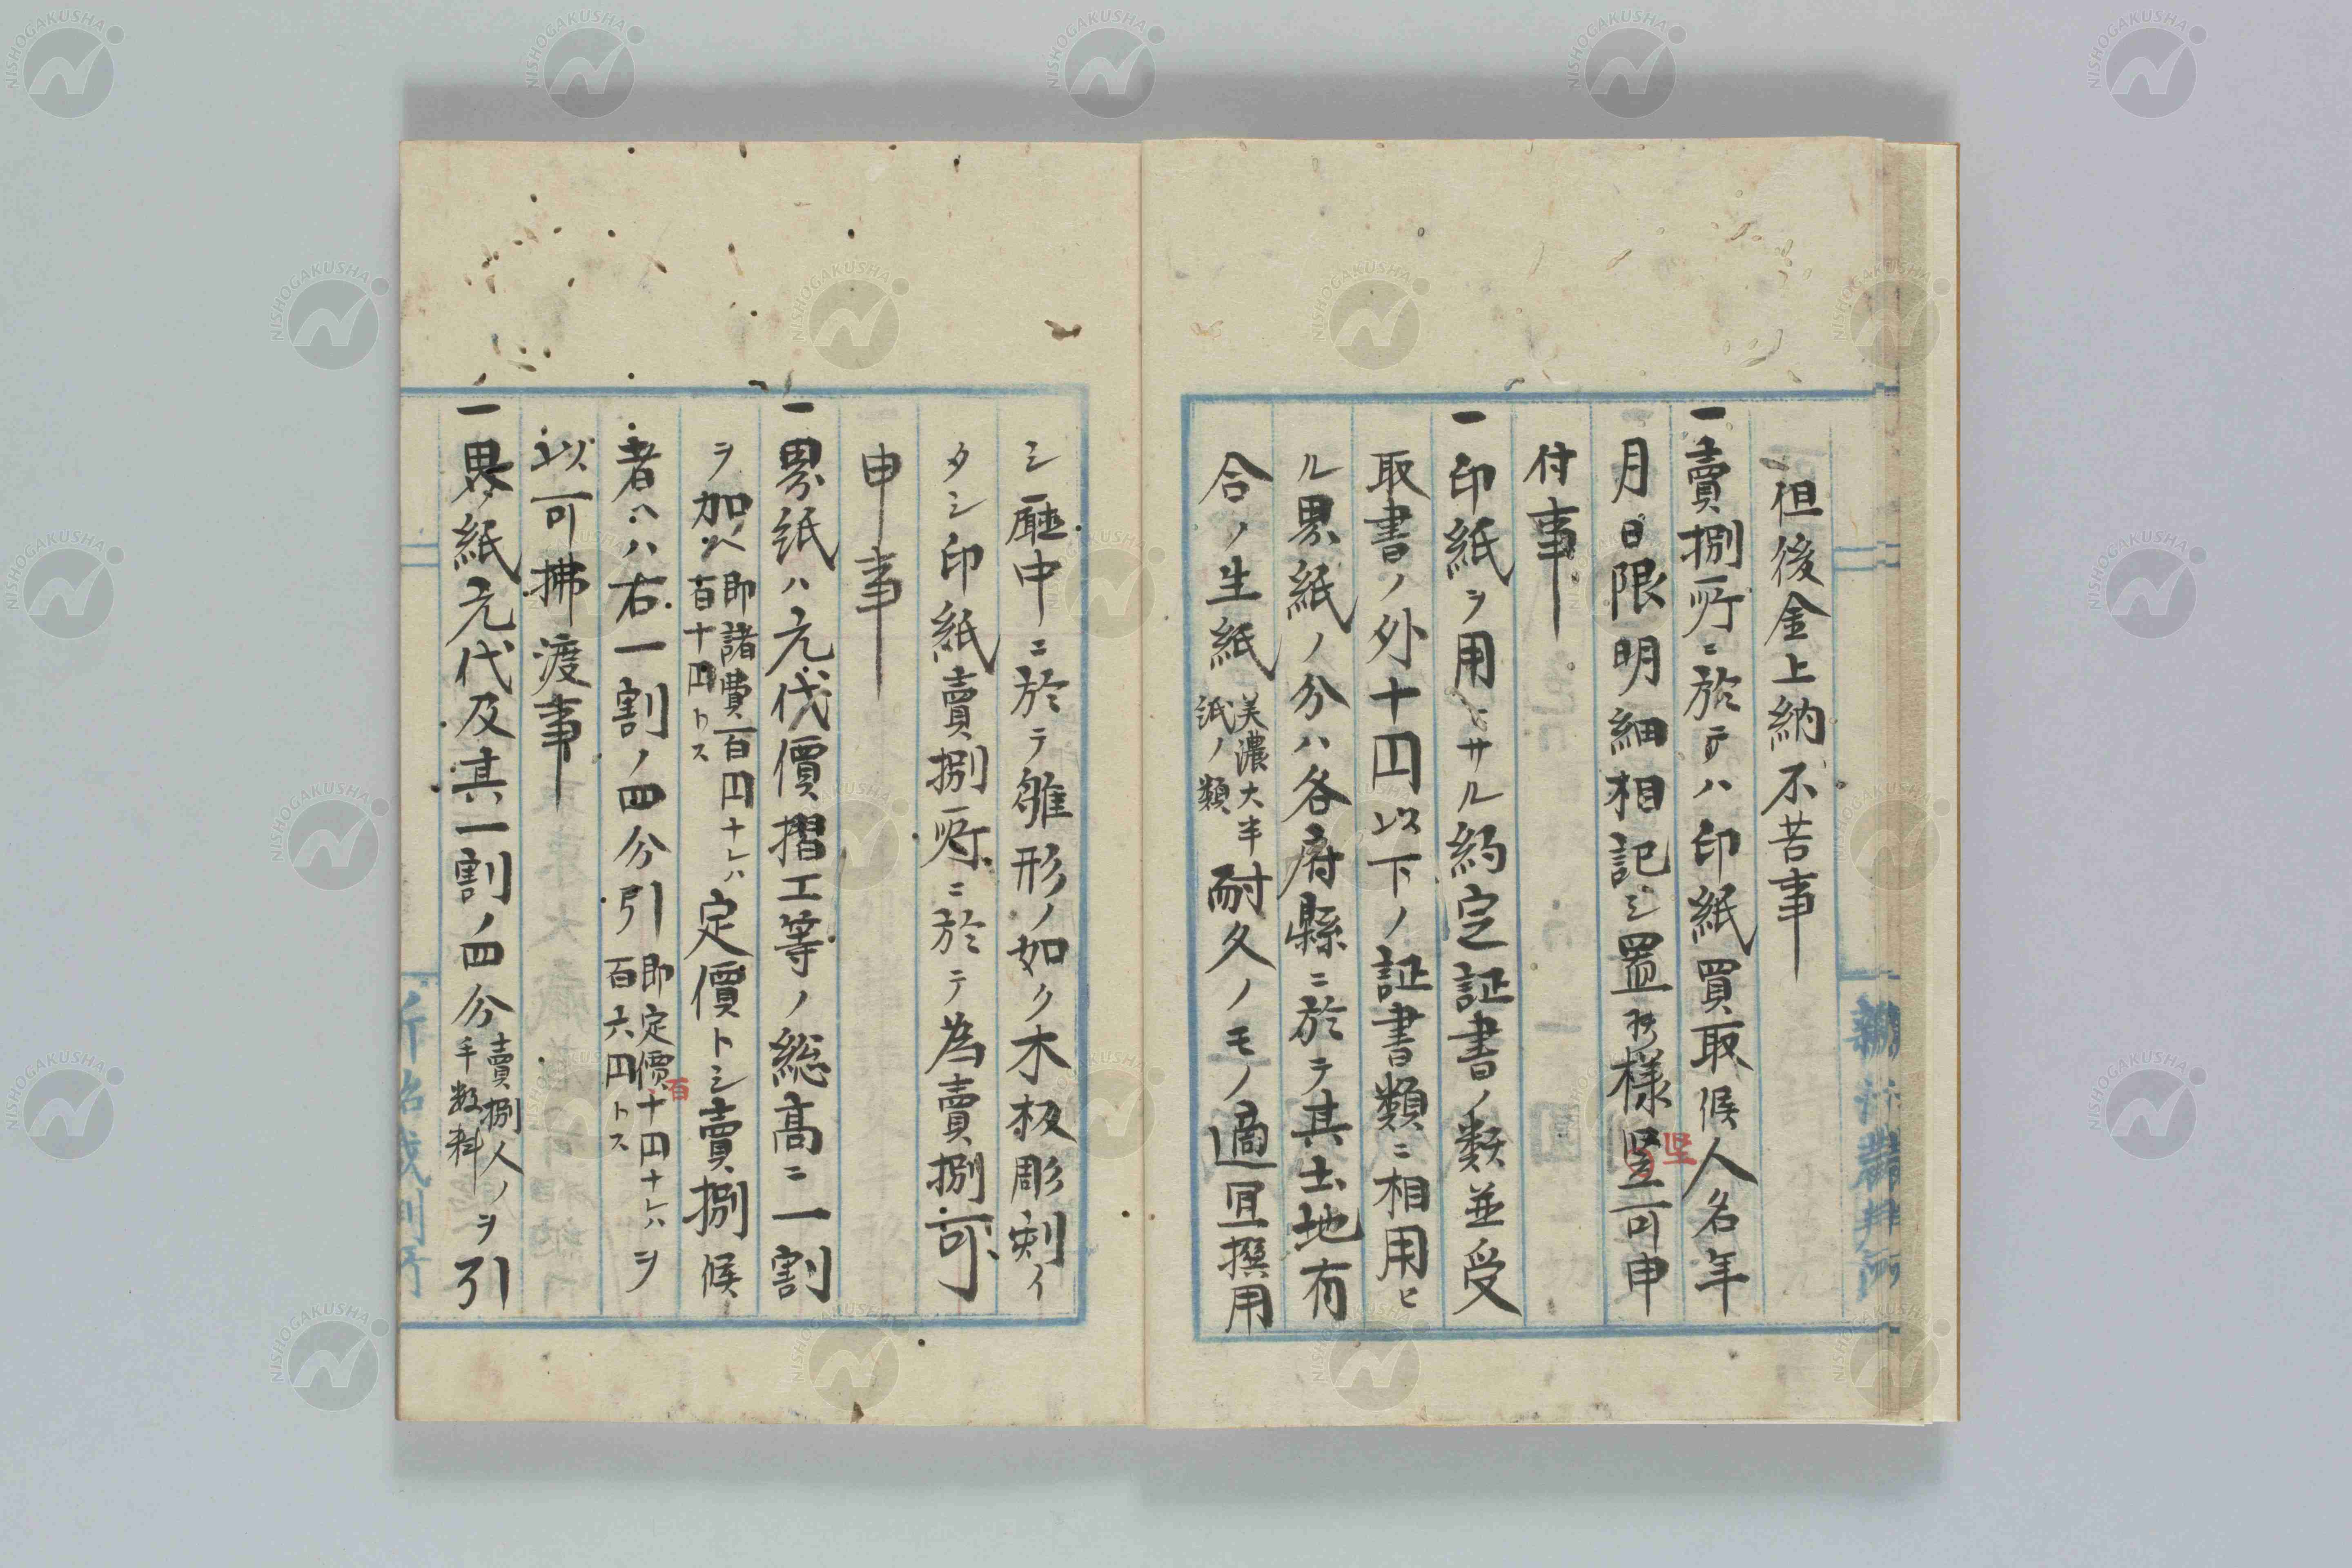 但後金上納不苦事
一賣捌所ニ於テハ印紙買取候人名年
月日限明細相記シ置候様堅可申
坚
付事
一印紙ヲ用ヒサル約定証書ノ類並受
取書ノ外十円以下ノ証書類ニ相用ヒ
ル界紙ノ分ハ各府縣ニ於テ其土地有
合ノ生紙美濃大半紙ノ類耐久ノモノ適宜撰用
シ廳中ニ於テ雛形ノ如ク木板彫刻イ
タシ印紙賣捌所ニ於テ為賣捌可
申事
一界紙ハ元代價摺工等ノ総高ニ一割
ヲ加ヘ即諸費百円ナレハ百十円トス定價トシ賣捌候
者ハ右一割ノ四分引即定價百十円ナレハ百六円トスヲ
以可拂渡事
一界紙元代及其一割ノ四分賣捌人ノ手数料ヲ引